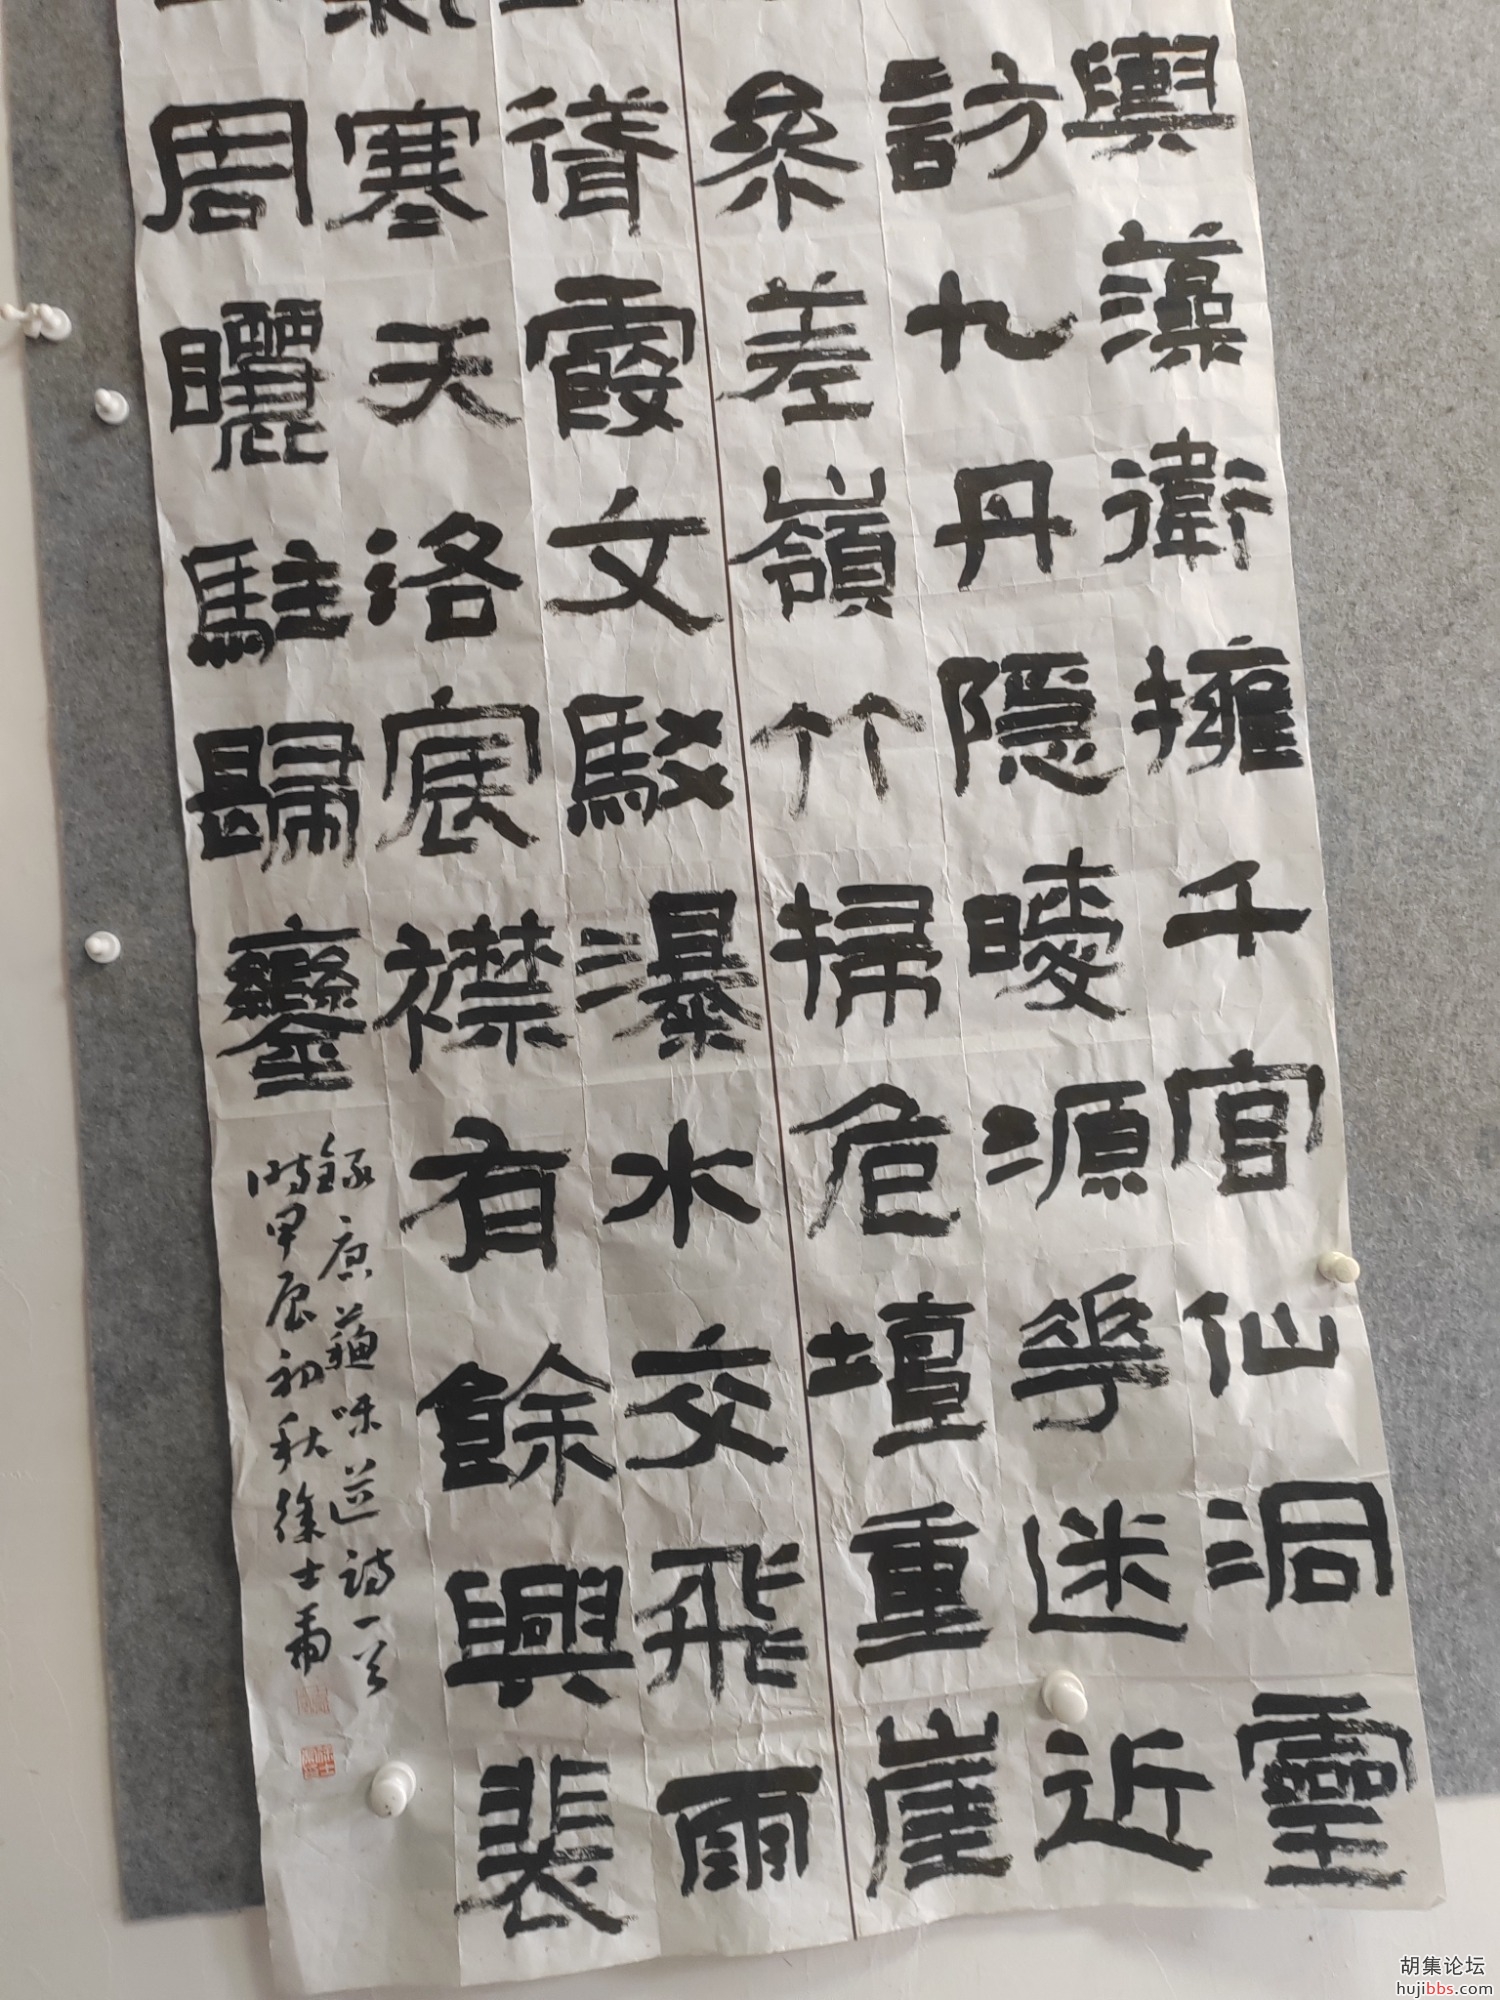 輿藻衛擁千官仙洞靈
訪九丹隱曖源華迷近
參差嶺竹掃危壇重崖
霞文駁瀑水交飛雨
氣寒天洛宸襟有餘興裴
周矖駐歸鑾
錄唐蘇味道詩一首
時甲辰初秋徐士
胡集论坛
hujibbs.com